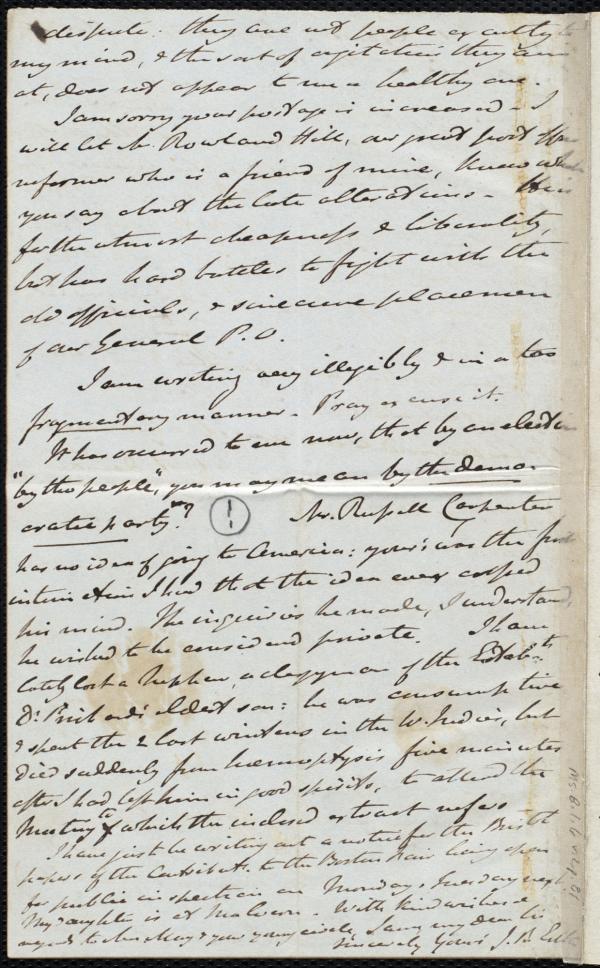 dispute: they are not people exactly to
my mind, & the sort of agitation they aim
at, does not appear to me a healthy one.
I am sorry your postage is increased - I
will let Mr. Rowland Hill, our great post office
reformer who is a friend of mine, know what
you say about the late alterations - He is
for the utmost cheapness & liberality,
but has hard battles to fight with the
old officials, & sinecure placemen
of our General P.O.
I am writing very illegibly & in a too
fragmentary manner - Pray excuse it.
It has occurred to me now, that by an election
"by the people", you may mean by the demo-
cratic party"? (!) Mr. Russell Carpenter
has no idea of going to America: your's was the first
intimation I had that the idea ever crossed
his mind. The inquiries he made, I understand,
he wished to be considered private. I have
lately lost a Nephew, a clergyman of the Establ.mt
Dr. Prichard's eldest son: he was consumptive
& spent the 2 last winters in the W. Indies, but
died suddenly from haemoptysis five minutes
after I had left him in good spirits, to attend the
Meeting to which the inclosed extract refers
I have just be writing out a notice for the Bristl
papers of the Contribts. to the Boston Fair being open
for public inspection on Monday & Tuesday next.
My daughter is at Malvern. With kind wishes &
regards to Mrs May & your young circle, I am my dear Sir
sincerely Yours J. B. Estlin
Ms. B. 1. 6 v. 4, 81